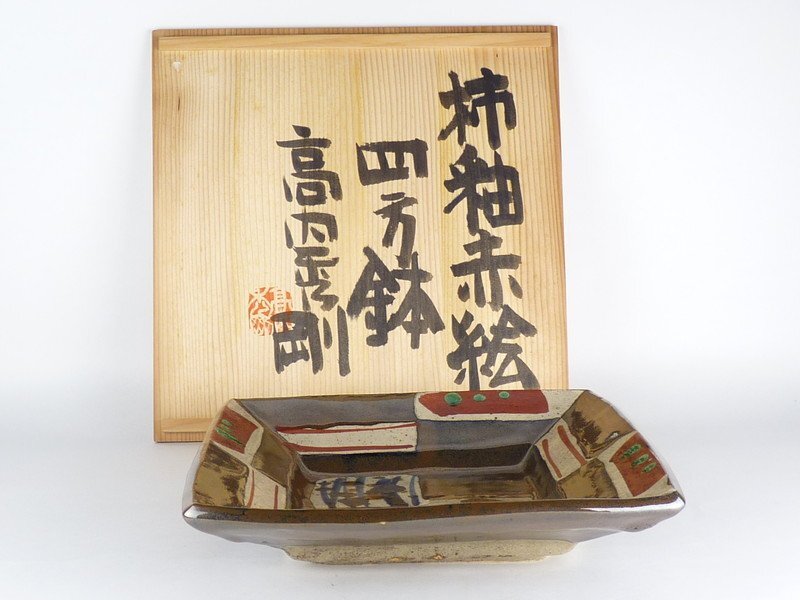 柿釉赤絵
四方鉢
高内秀剛